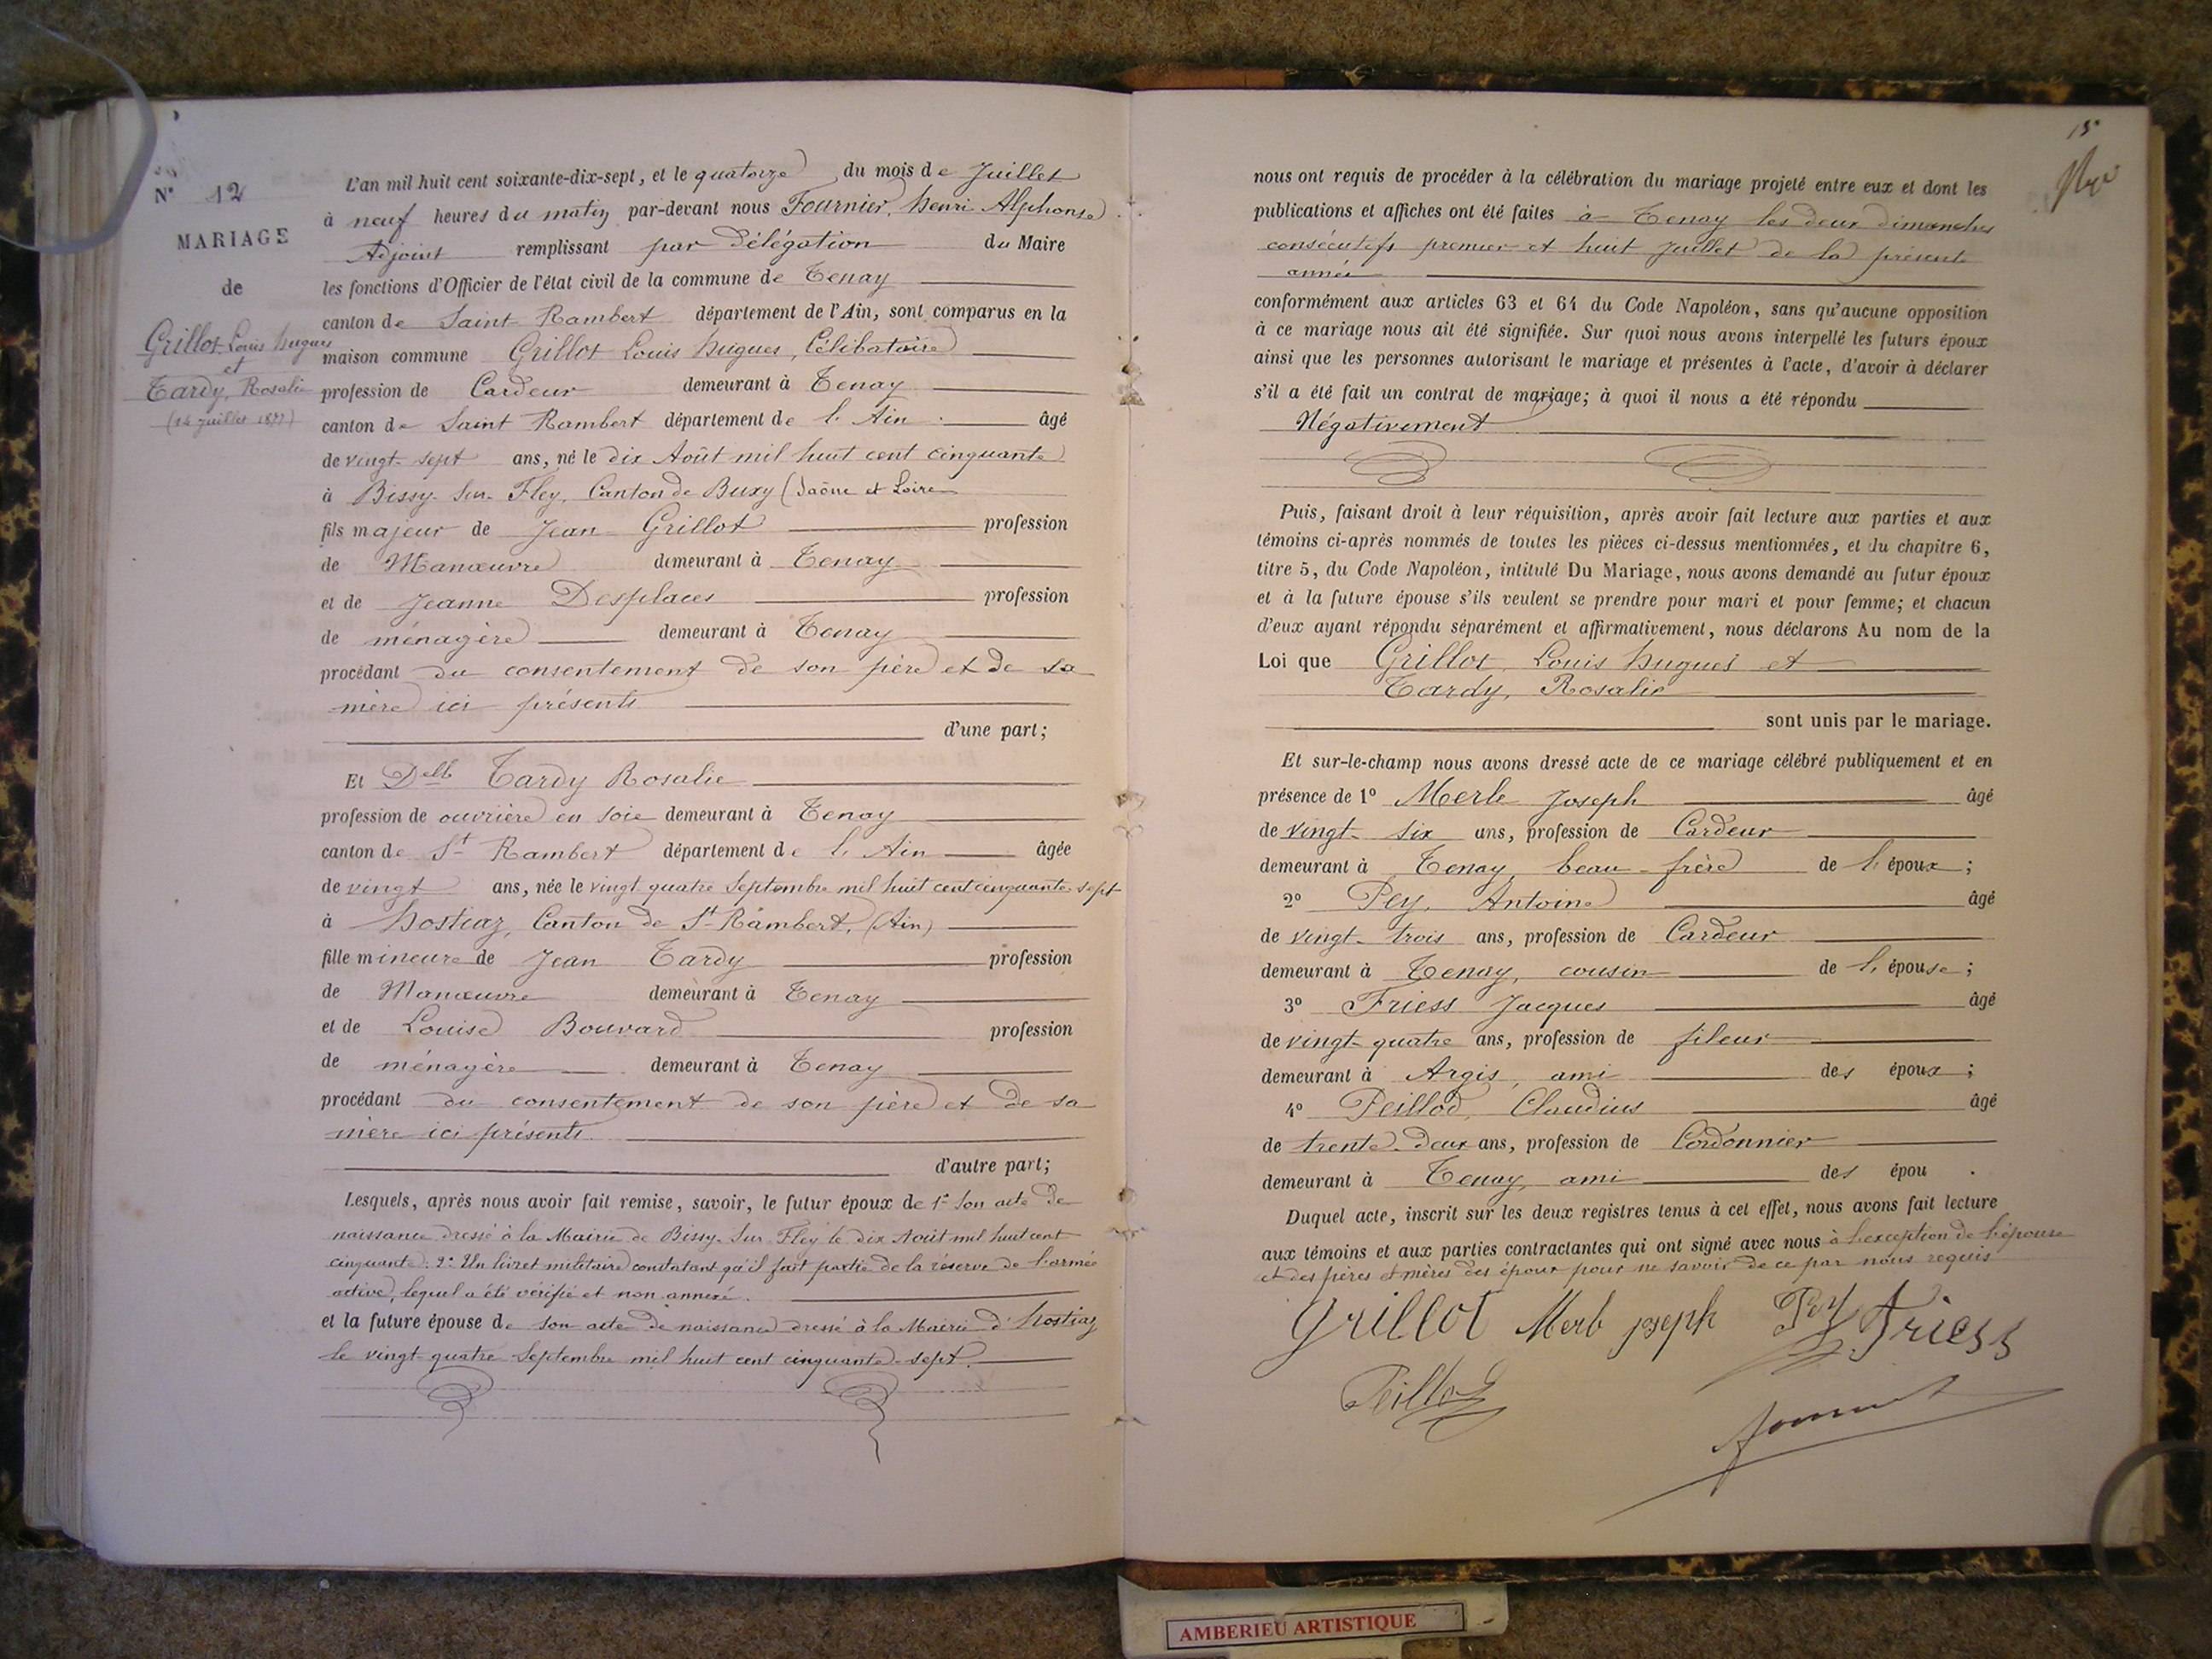 N° 12
MARIAGE
de
Grillot Louis hugues
et
Tardy, Rosalie
(14 Juillet 1877)
L'an mil huit cent soixante-dix-sept, et le quatorze du mois de Juillet
à neuf heures du matin par-devant nous Fournier, henri Alphonse
Adjoint remplissant par Délégation du Maire
les fonctions d'Officier de l'état civil de la commune de Tenay
canton de Saint Rambert département de l'Ain, sont comparus en la
maison commune Grillot Louis hugues, Célibataire
profession de Cardeur demeurant à Tenay
canton de Saint Rambert département de l'Ain âgé
de vingt-sept ans, né le dix Août mil huit cent cinquante
à Bissy-Sur-Fley, Canton de Buxy (Saône et Loire
fils majeur de Jean Grillot profession
de Manœuvre demeurant à Tenay
et de Jeanne Desplaces profession
de ménagère demeurant à Tenay
procédant du consentement de son père et de sa
mère ici présents
d'une part;
Et Delle Tardy Rosalie
profession de ouvrière en soie demeurant à Tenay
canton de St Rambert département de l'Ain âgée
de vingt ans, née le vingt quatre Septembre mil huit cent cinquante-sept
à hostiaz, Canton de St Rambert, (Ain)
fille mineure de Jean Tardy profession
de Manœuvre demeurant à Tenay
et de Louise Bouvard profession
de ménagère demeurant à Tenay
procédant du consentement de son père et de sa
mère ici présents
d'autre part;
Lesquels, après nous avoir fait remise, savoir, le futur époux de 1° Son acte de
naissance dressé à la Mairie de Bissy-Sur-Fley le dix Août mil huit cent
cinquante. 2° Un livret militaire constatant qu'il fait partie de la réserve de l'armée
active, lequel a été vérifié et non annexé.
et la future épouse de son acte de naissance dressé à la Mairie d'hostiaz
le vingt-quatre Septembre mil huit cent cinquante-sept.
15
nous ont requis de procéder à la célébration du mariage projeté entre eux et dont les
publications et affiches ont été faites à Tenay les deux dimanches
consécutifs premier et huit Juillet de la présente
année
conformément aux articles 63 et 64 du Code Napoléon, sans qu'aucune opposition
à ce mariage nous ait été signifiée. Sur quoi nous avons interpellé les futurs époux
ainsi que les personnes autorisant le mariage et présentes à l'acte, d'avoir à déclarer
s'il a été fait un contrat de mariage; à quoi il nous a été répondu
Négativement
Puis, faisant droit à leur réquisition, après avoir fait lecture aux parties et aux
témoins ci-après nommés de toutes les pièces ci-dessus mentionnées, et du chapitre 6,
titre 5, du Code Napoléon, intitulé Du Mariage, nous avons demandé au futur époux
et à la future épouse s'ils veulent se prendre pour mari et pour femme; et chacun
d'eux ayant répondu séparément et affirmativement, nous déclarons Au nom de la
Loi que Grillot, Louis hugues et
Tardy, Rosalie
sont unis par le mariage.
Et sur-le-champ nous avons dressé acte de ce mariage célébré publiquement et en
présence de 1° Merle Joseph âgé
de vingt-six ans, profession de Cardeur
demeurant à Tenay, beau-frère de l'époux;
2° Pey, Antoine âgé
de vingt-trois ans, profession de Cardeur
demeurant à Tenay, cousin de l'épouse;
3° Friess Jacques âgé
de vingt-quatre ans, profession de fileur
demeurant à Argis, ami des époux;
4° Peillod, Claudius âgé
de trente-deux ans, profession de Cordonnier
demeurant à Tenay, ami des épou .
Duquel acte, inscrit sur les deux registres tenus à cet effet, nous avons fait lecture
aux témoins et aux parties contractantes qui ont signé avec nous à l'exception de l'épouse
et des pères et mères des époux pour ne savoir de ce par nous requis
Grillot Merle joseph Pey Friess
Peillod
AMBERIEU ARTISTIQUE